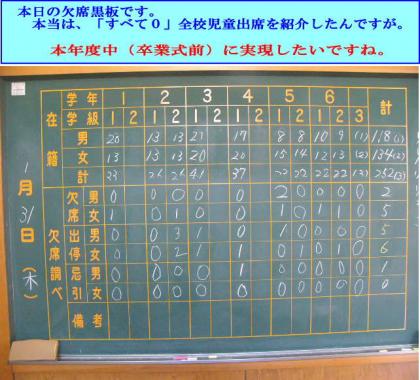 本日の欠席黒板です。
本当は、「すべて0」全校児童出席を紹介したんですが。
本年度中（卒業式前）に実現したいですね。
学年 1 2 3 4 5 6 計
学級 1 2 1 2 1 2 1 2 1 2 1 2 3
在籍
男 20 13 13 21 17 8 8 10 9 (1) 118(1)
女 13 13 13 20 20 15 14 12 13 (2) 134(2)
計 33 26 26 41 37 22 22 22 (3) 252(3)
欠席調べ
欠席 男 0 0 0 0 0 2 0 0 0 0 2
女 1 0 1 0 0 1 0 1 1 0 5
出停 男 0 0 3 1 0 1 0 0 0 0 5
女 0 0 2 1 1 0 1 0 1 0 6
忌引 男 0 0 0 0 1 0 0 0 0 0 1
女 0 0 0 0 0 0 0 0 0 0 0
備考
1月31日（木）